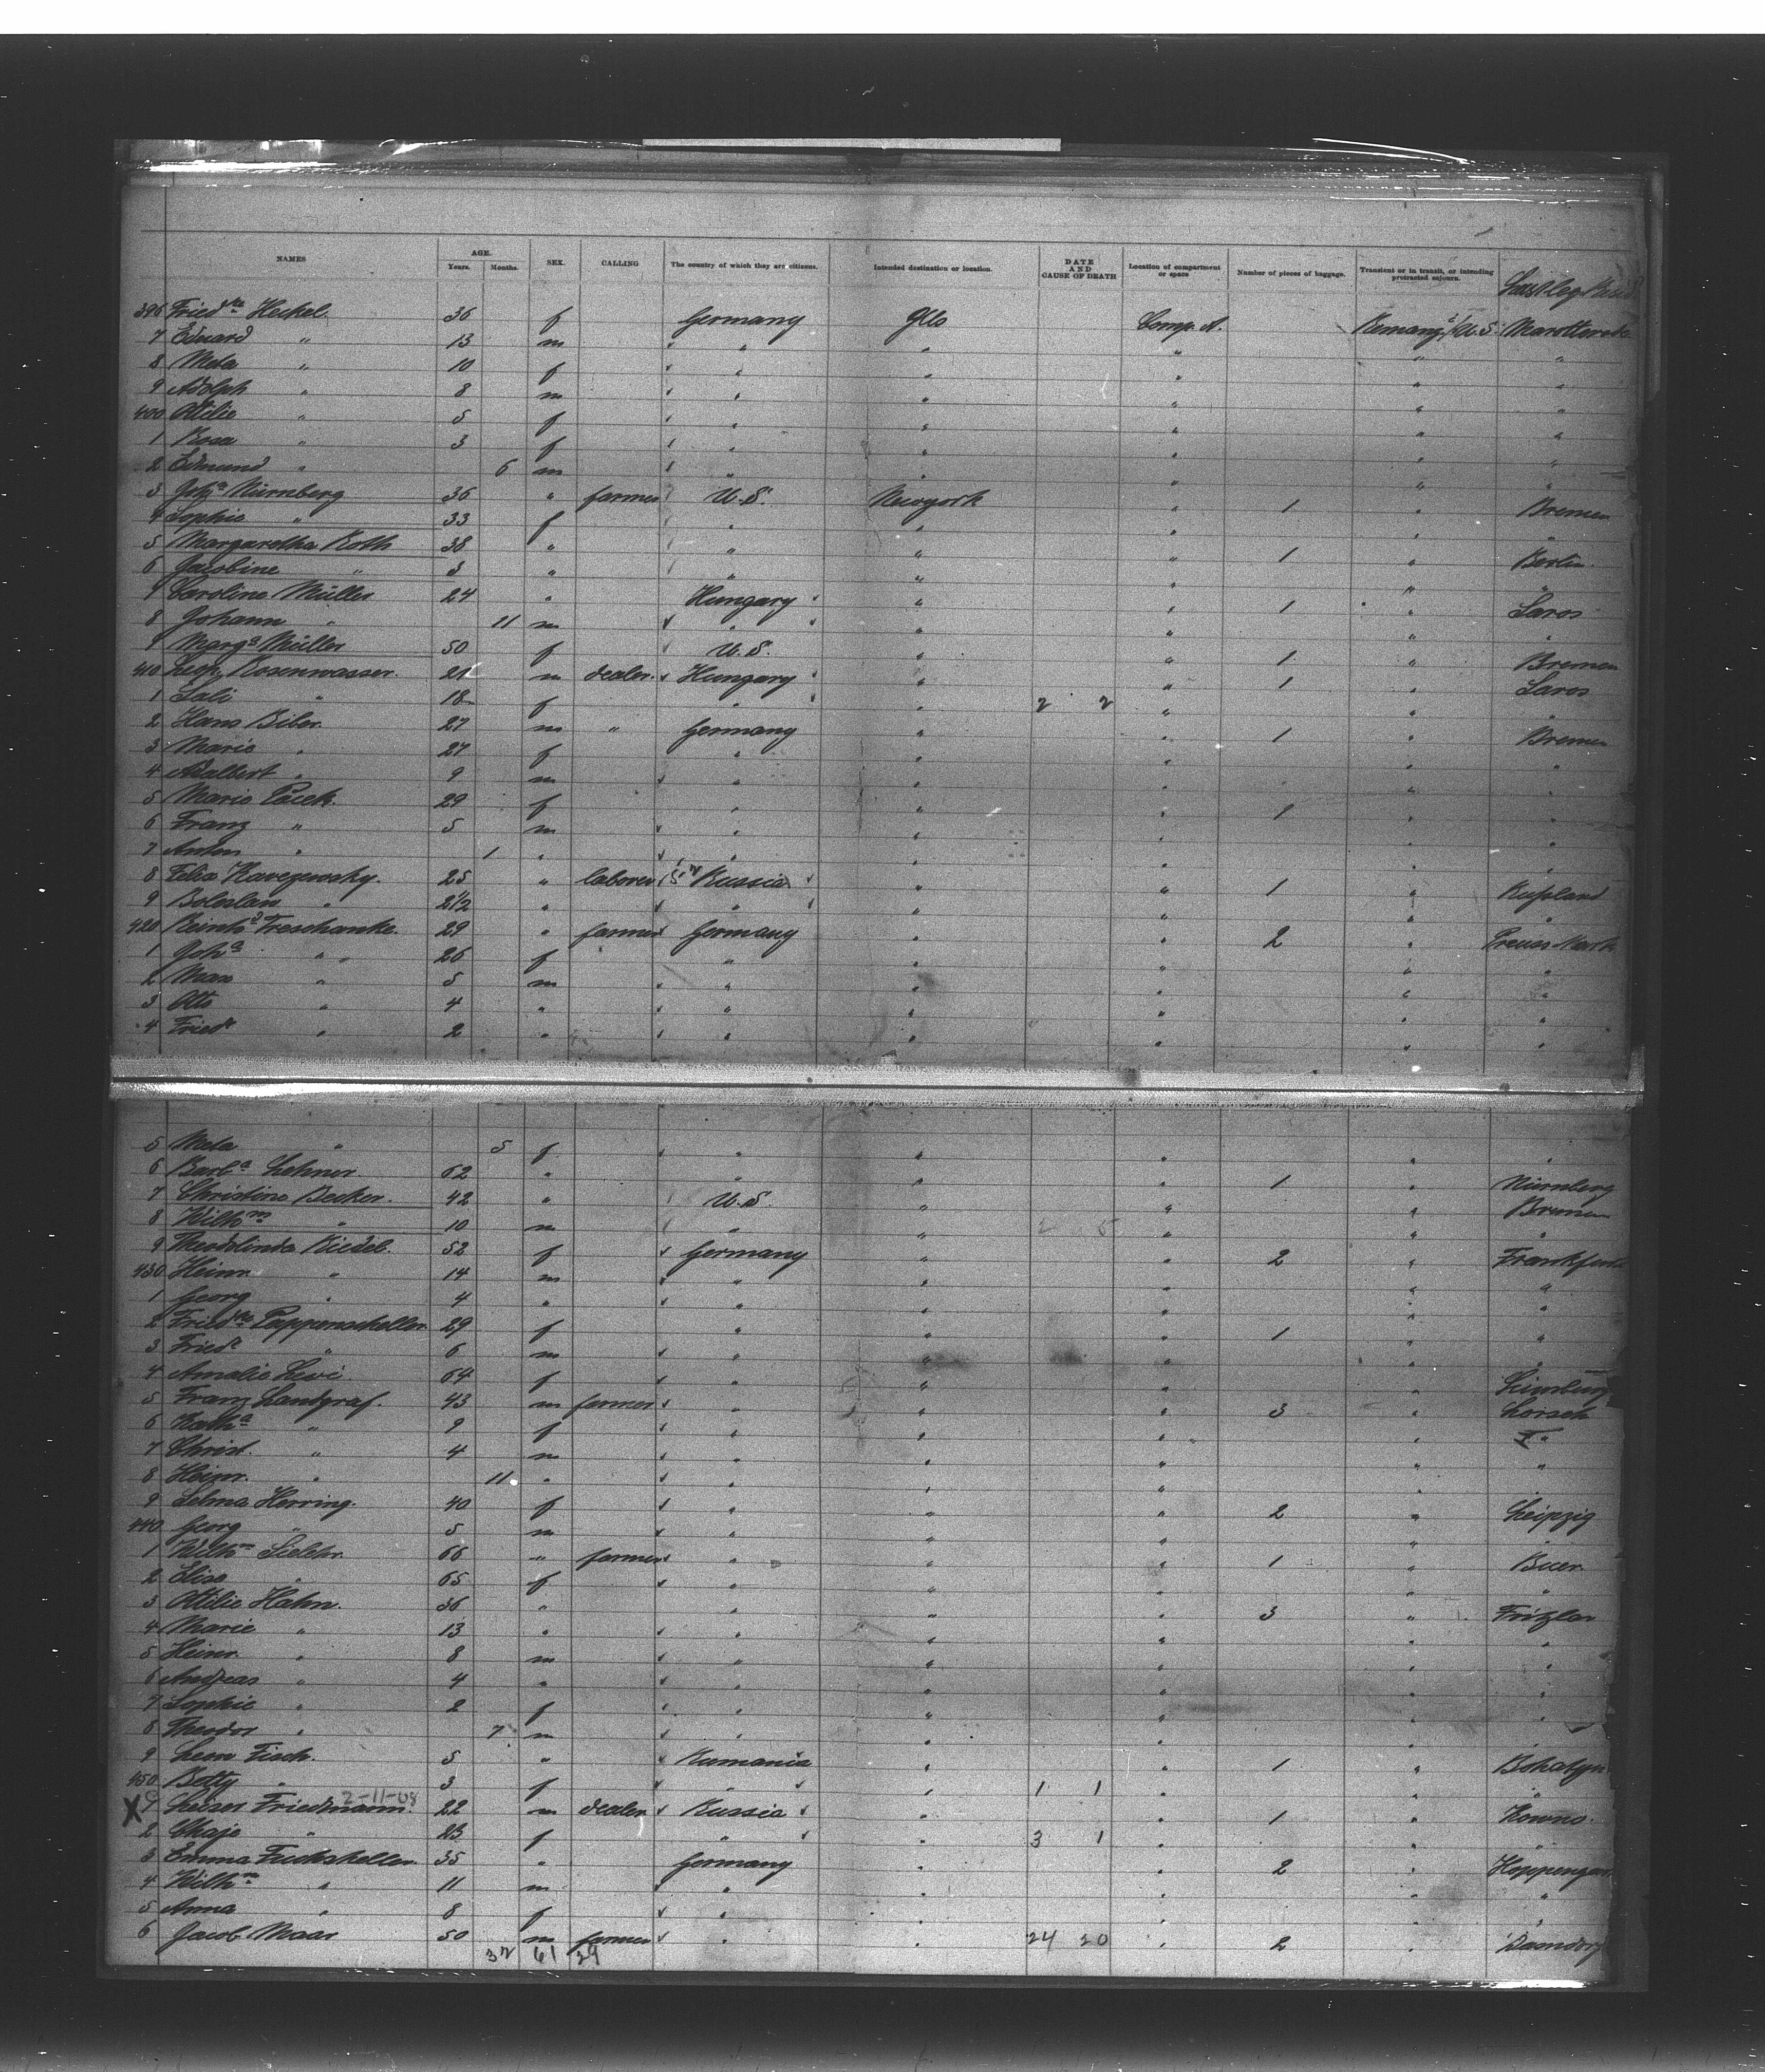 NAMES AGE. Years. Months. SEX. CALLING The country of which they are citizens. Intended destination or location. DATE AND CAUSE OF DEATH Location of compartment or space Number of pieces of baggage. Transient or in transit, or intending protracted sojourn.
396 Fried.ke Heckel. 36 f Germany Comp. A. U.S.
7 Eduard " 13 m " " " " " "
8 Meta " 10 f " " " " "
9 Adolph " 8 m " " " " "
400 Otilie " 5 f " " " " "
1 Rosa " 3 f " " " " "
2 Edmund " 6 m " " " " "
3 Joh.a Nürnberg 36 " farmer U.S. Newyork " 1 " Bremen
4 Sophie " 33 f " " " " "
5 Margaretha Roth 38 " " " " 1 " Berlin.
6 Jacobine " 3 " " " " " "
7 Caroline Müller 24 " Hungary " " 1 " Saros
8 Johann " 11 m " " " " "
9 Marg.a Müller 50 f U.S. " " 1 " Bremen
410 Rosenwasser. 21 m dealer. Hungary " " 1 " Saros
1 Sali " 18 f " " 2 2 " " "
2 Hans Biber. 27 m " Germany " " 1 " Bremen
3 Marie " 27 f " " " " "
4 Adalbert " 9 m " " " " "
5 Marie Pacek. 29 f " " " 1 " "
6 Franz " 5 m " " " " "
7 Anton " 1 " " " " " "
8 Felix 25 " laborer Russia " " 1 " Rußland
9 Boleslav " 2 1/2 " " " " " "
420 Reinh.d Treschanke. 29 " farmer Germany " " 2 "
1 Joh.a " 26 f " " " " "
2 Max " 5 m " " " " "
3 Otto " 4 " " " " " "
4 Fried.r " 2 " " " " " "
5 Meta " 5 f " " " " "
6 Barb.a Lehner 62 " " " " 1 " Nürnberg
7 Christine Becker. 42 " U.S. " " " Bremen
8 Wilh.m " 10 m " " 2 5 " " "
9 Theodolinda Riedel. 52 f Germany " " 2 " Frankfurt
430 Heinr. " 14 m " " " " "
1 Georg " 4 " " " " " "
2 Fried.ke Pappenscheller 29 f " " " 1 " "
3 Fried.r " 6 m " " " " "
4 Amalie Levi. 64 f " " " " Limburg
5 Franz Landgraf. 43 m farmer " " " 3 " Lorsch
6 Kath.a " 9 f " " " " "
7 Christ. " 4 m " " " " "
8 Heinr. " 11 " " " " " "
9 Selma Herring. 40 f " " " 2 " Leipzig
440 Georg " 5 m " " " "
1 Wilh.m 66 " farmer " " " 1 " Buer.
2 Elise " 65 f " " " " "
3 Otilie Hahn. 36 " " " " 3 " Fritzlar
4 Marie " 13 " " " " " "
5 Heinr. " 8 m " " " " "
6 Andreas " 4 " " " " " "
7 Sophie " 2 f " " " " "
8 Theodor " 7 m " " " " "
9 Fisch. 5 " Rumania " " 1 "
450 Betty " 3 f " " 1 1 " " "
X 1 Leiser Friedmann. 2-11-08 22 m dealer Russia " " 1 " Kowno.
2 Chaje " 23 f " " 3 1 " " "
3 Emma 35 " Germany " " 2 "
4 Wilh.m " 11 m " " " " "
5 Anna " 8 f " " " " "
6 Jacob Maar 50 m farmer " " 24 20 " 2 "
32 61 29